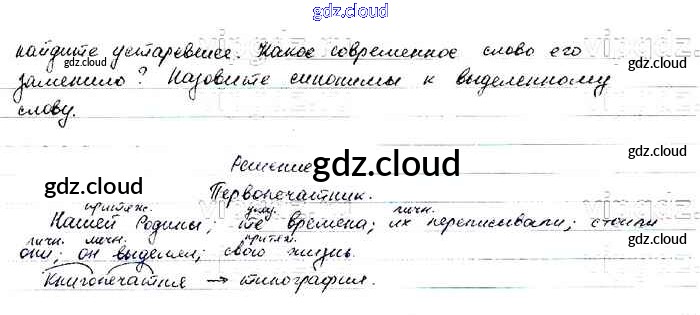 gdz.cloud
найдите устаревшее. Какое современное слово его
заменило? Назовите синонимы к выделенному
слову.
Решение
Первопечатник.
притяж. указ. личн.
Нашей Родины; те времена; их переписывали; стоили
личн. личн. притяж.
они; он выделен; свою жизнь.
Книгопечатния → типография.